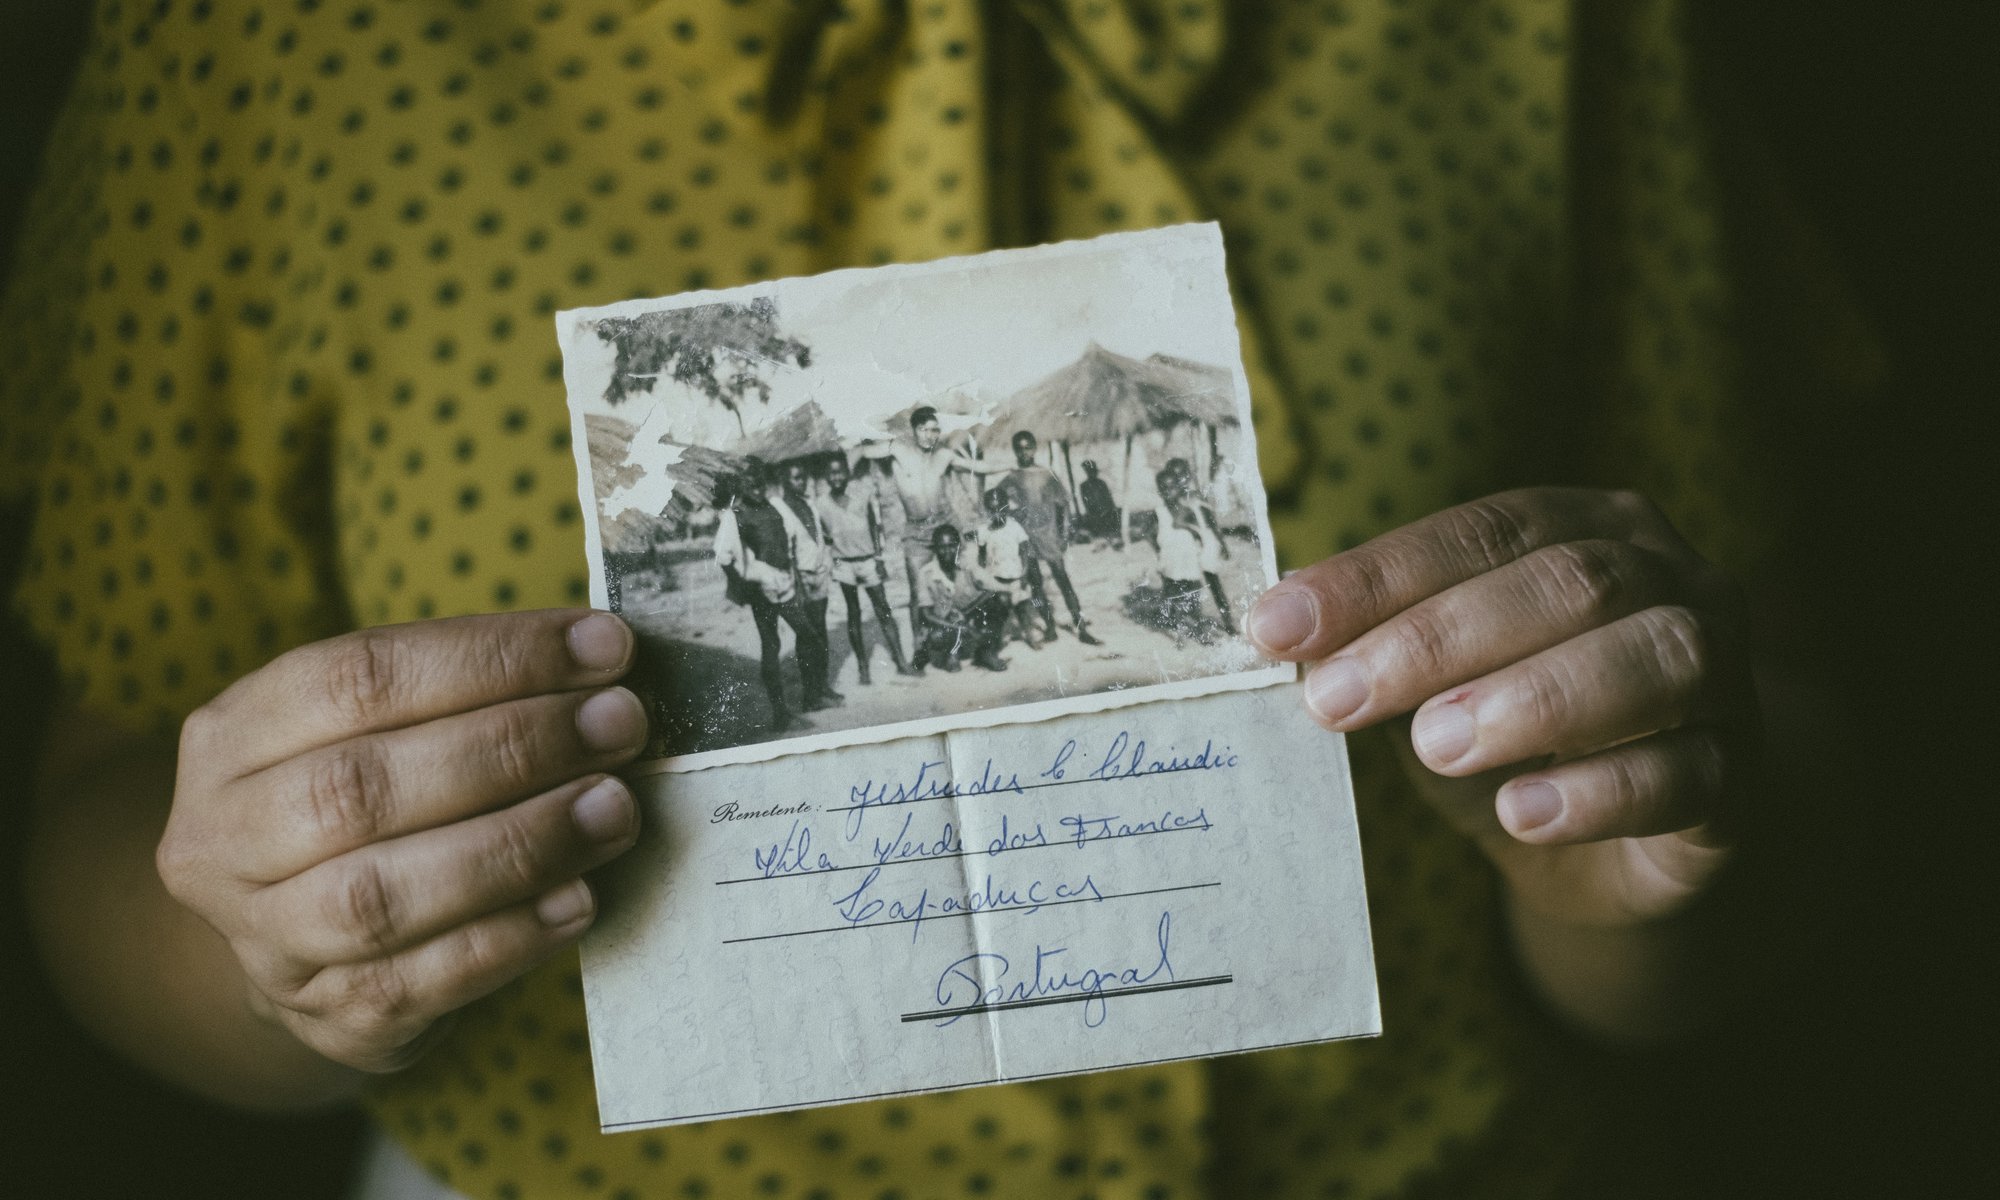 Remetente: Gestrudes C Claudio
Vila Verde dos Francos
Capaduças
Portugal